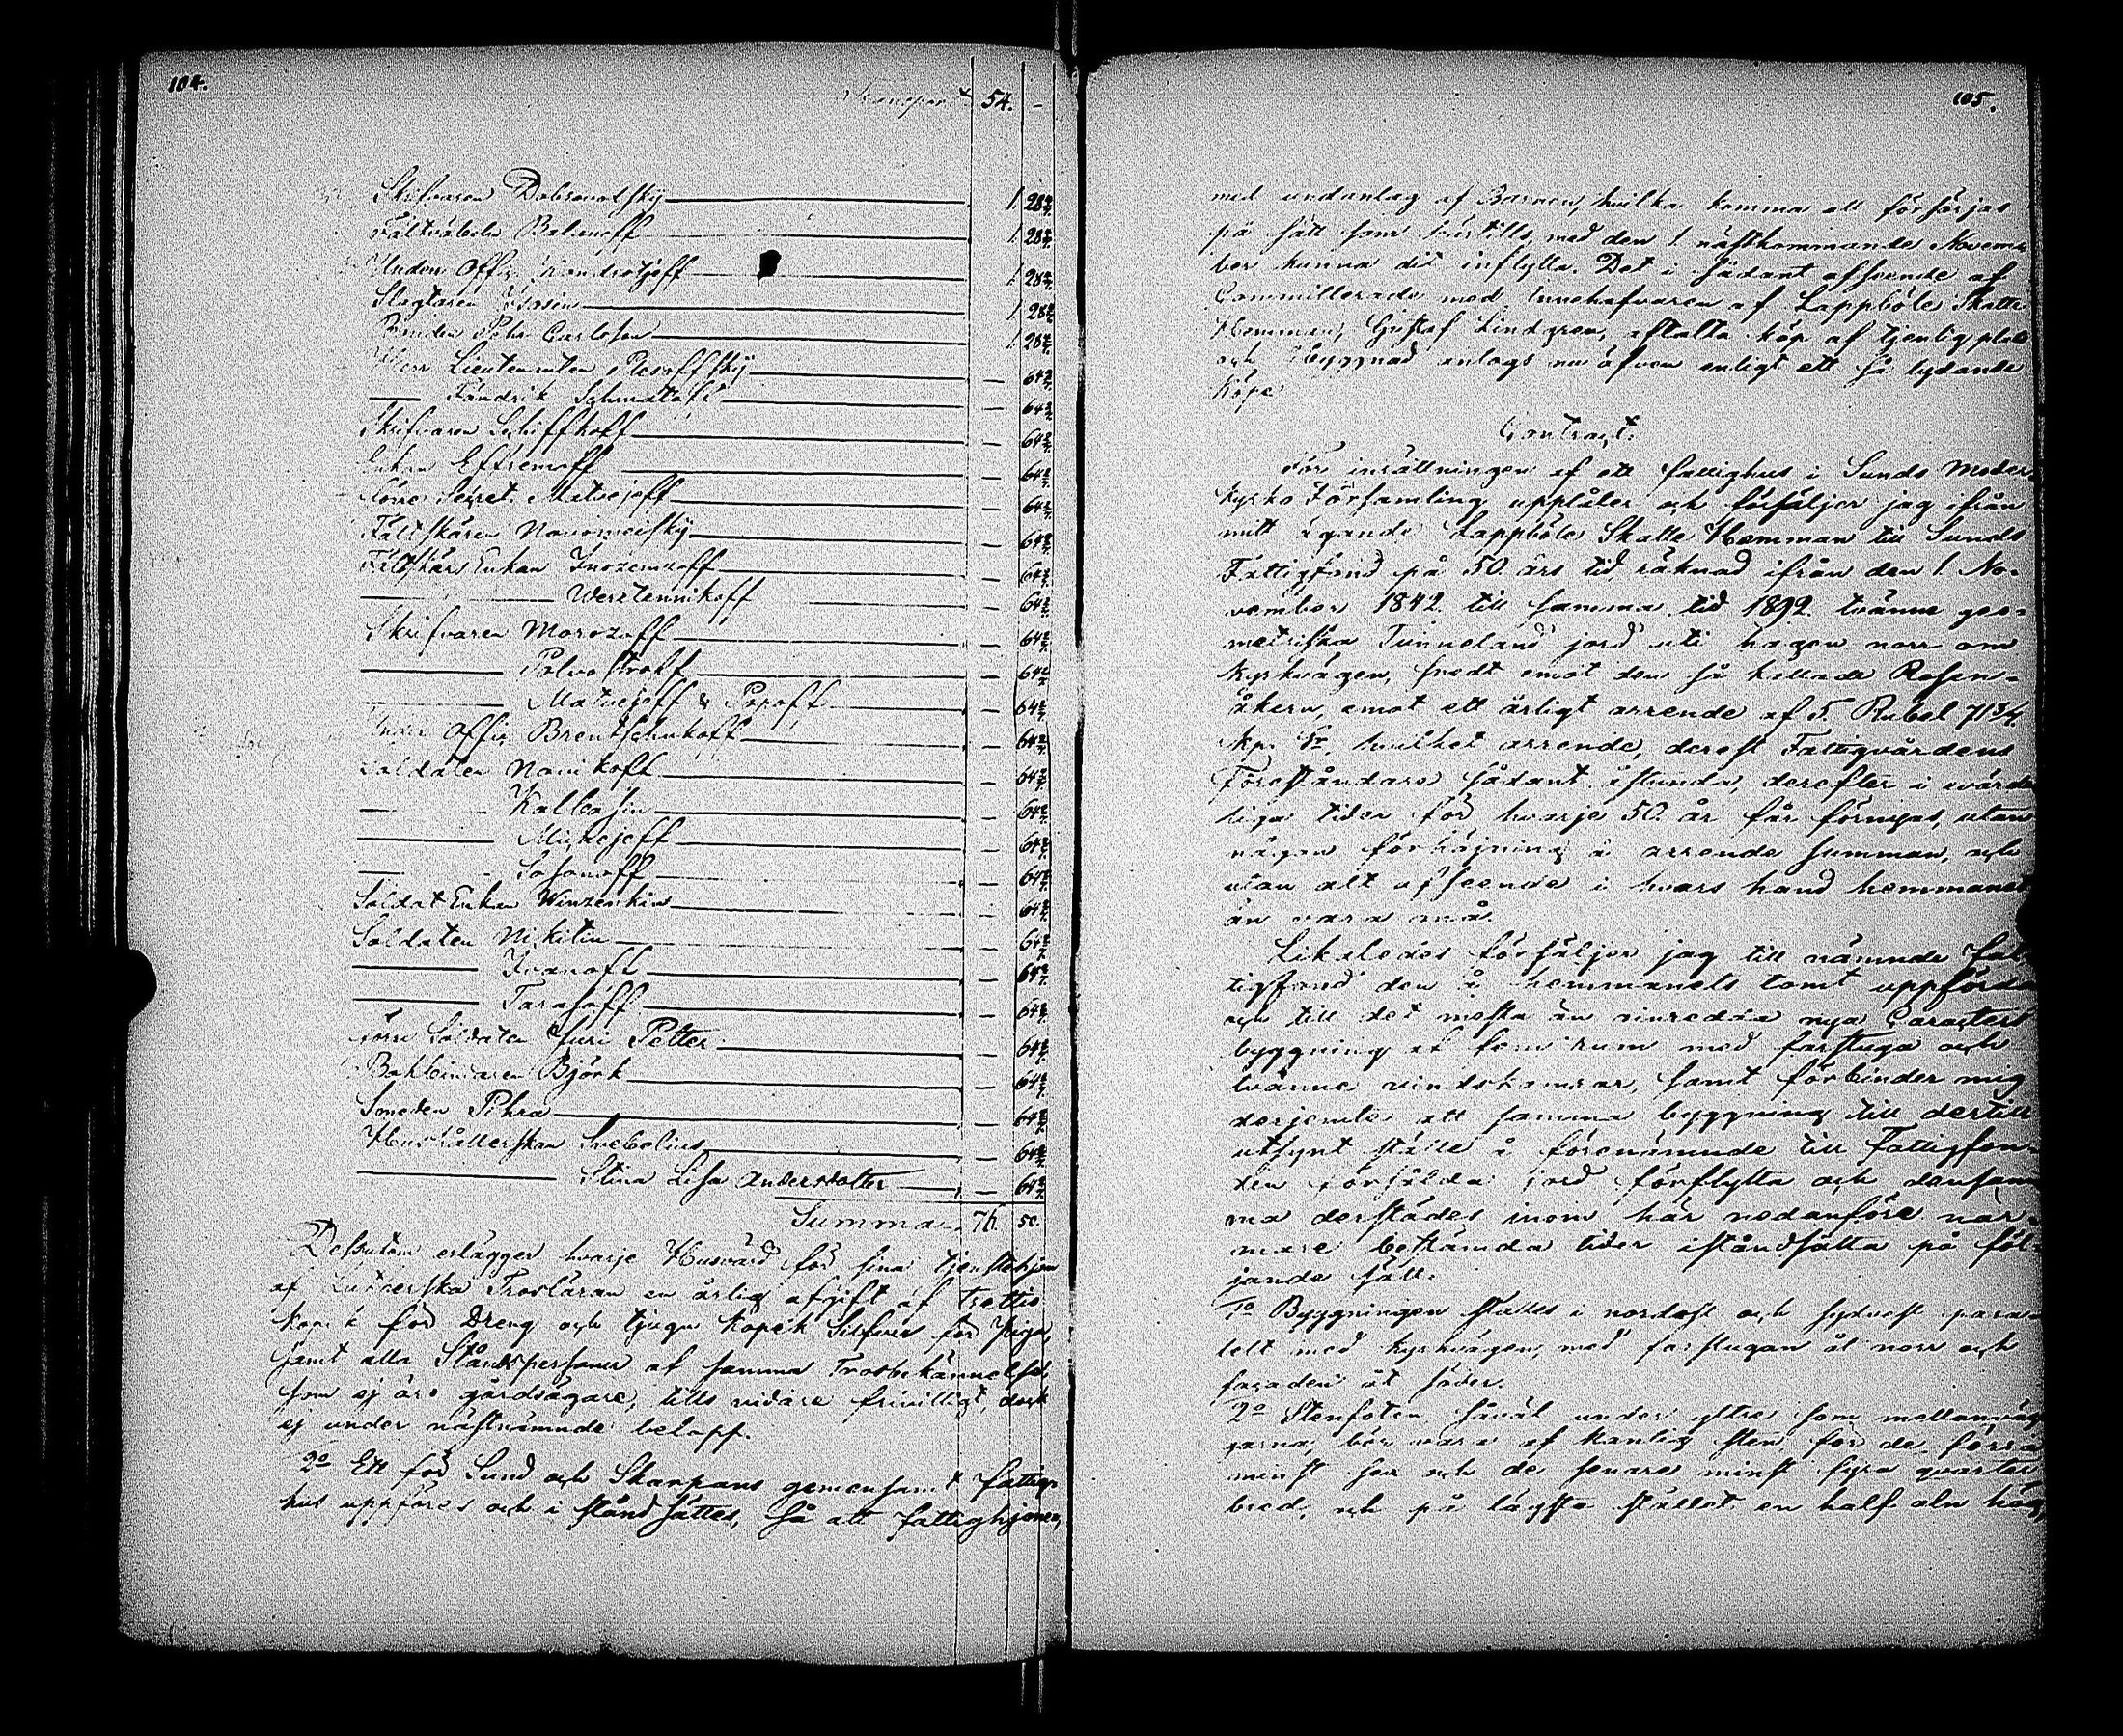 104.
Transport 54. -
Skrifvaren Dobrovolsky 1. 28 4/7.
Fältväbeln Balanoff 1. 28 4/7.
Under Offic. Kondratjeff 1. 28 4/7.
Slagtaren 1. 28 4/7.
Bonden Pehr Carlsson 1. 28 4/7.
Herr Lieutenanten — 64 2/7.
— Fändrik — 64 2/7.
Skrifvaren Schiffkoff — 64 2/7.
Enkan Effremoff — 64 2/7.
Förre Secret. Matvejeff — 64 2/7.
Fältskären Novomeisky — 64 2/7.
Fältskärs Enkan Inozemzoff — 64 2/7.
— Weretennikoff — 64 2/7.
Skrifvaren Morozoff — 64 2/7.
— — 64 2/7.
— Matvejeff & Popoff — 64 2/7.
Under Offic. Brentschukoff — 64 2/7.
Soldaten Novikoff — 64 2/7.
— Kallasin — 64 2/7.
— Mickejeff — 64 2/7.
— Safonoff — 64 2/7.
Soldat Enkan — 64 2/7.
Soldaten Nikitin — 64 2/7.
— Ivanoff — 64 2/7.
— Tarasoff — 64 2/7.
Förre Soldaten Juri Petter — 64 2/7.
Bokbindaren Björk — 64 2/7.
Smeden Pihra — 64 2/7.
Hushållerskan Svebelius — 64 2/7.
— Stina Lisa Andersdotter — 64 2/7.
Summa 76. 50.
Dessutom erlägger hvarje Husvärd för sina tjenstehjon
af Lutherska Trosläran en årlig afgift af trettio
kopek för Dreng och tjugu kopek Silfver för Piga,
samt alla Ståndspersoner af samma Trosbekännelse
som ej äro gårdsägare, tills vidare frivilligt, dock
ej under nästnämnde belopp.
2o Ett för Sund och Skarpans gemensamt fattig-
hus uppföres och i stånd sättes, så att fattighjonen,
105.
med undantag af Barnen, hvilka komma att försörjas
på sätt som härtills, med den 1. nästkommande Novem-
ber kunna dit inflytta. Det i sådant afseende af
Committerade med Innehafvaren af Lappböle Skatte
Hemman, Gustaf Lindgren, aftalta köp af tjenlig plats
och byggnad antogs nu äfven enligt ett så lydande
Köpe
Contract.
För inrättningen af ett fattighus i Sunds Moder-
kyrko Församling upplåter och försäljer jag ifrån
mitt ägande Lappböle Skatte Hemman till Sunds
Fattigfond på 50. års tid räknad ifrån den 1. No-
vember 1842 till samma tid 1892 tvänne geo-
metriska Tunneland jord uti hagen norr om
Kyrkvägen, snedt emot den så kallade Rosen-
åkern, emot ett årligt arrende af 5. Rubel 71 3/7
kp. Sr, hvilket arrende, derest Fattigvårdens
Föreståndare sådant åstunda, derefter i evärde-
liga tider för hvarje 50. år får förnyas, utan
någon förhöjning i arrende summan, och
utan alt afseende i hvars hand hemmanet
än vara må.
Likaledes försäljer jag till nämnde Fat-
tigfond den å hemmanets tomt uppförda
och till det mesta än oinredda nya Caracters
byggning af fem rum med farstuga och
tvänne vindskamrar, samt förbinder mig
derjemte att samma byggning till dertill
utsynt ställe å förenämnde till Fattigfon-
den försålda jord förflytta och densam-
ma derstädes inom här nedanföre när-
mare bestämda tider iståndsätta på föl-
jande sätt.
1o Byggningen ställes i nordost och sydvest paral-
lelt med Kyrkvägen, med farstugan åt norr och
facaden åt söder.
2o Stenfoten såväl under yttre som mellanväg-
garna, bör vara af kantig sten, för de förra
minst sex och de senare minst fyra qvarter
bred, och på lägsta stället en half aln hög,